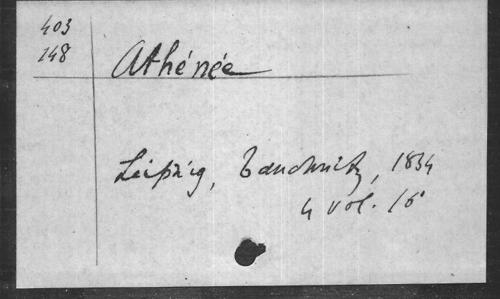 403
148
Athénée
Leipzig, Tauchnitz, 1834
4 vol. 16°